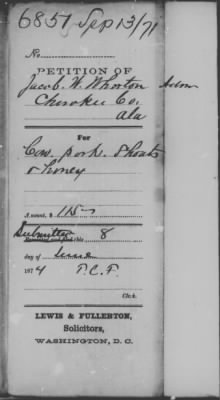 6851 Sep 13/71
No.
PETITION OF
Jacob. W. Whorton Adm
Cherokee Co.
Ala
For
Cow, pork, Shoats
& honey
Amount, $ 115-
Submitted 8
day of June
1874 P.C.F.
Clerk.
LEWIS & FULLERTON,
Solicitors,
WASHINGTON, D. C.